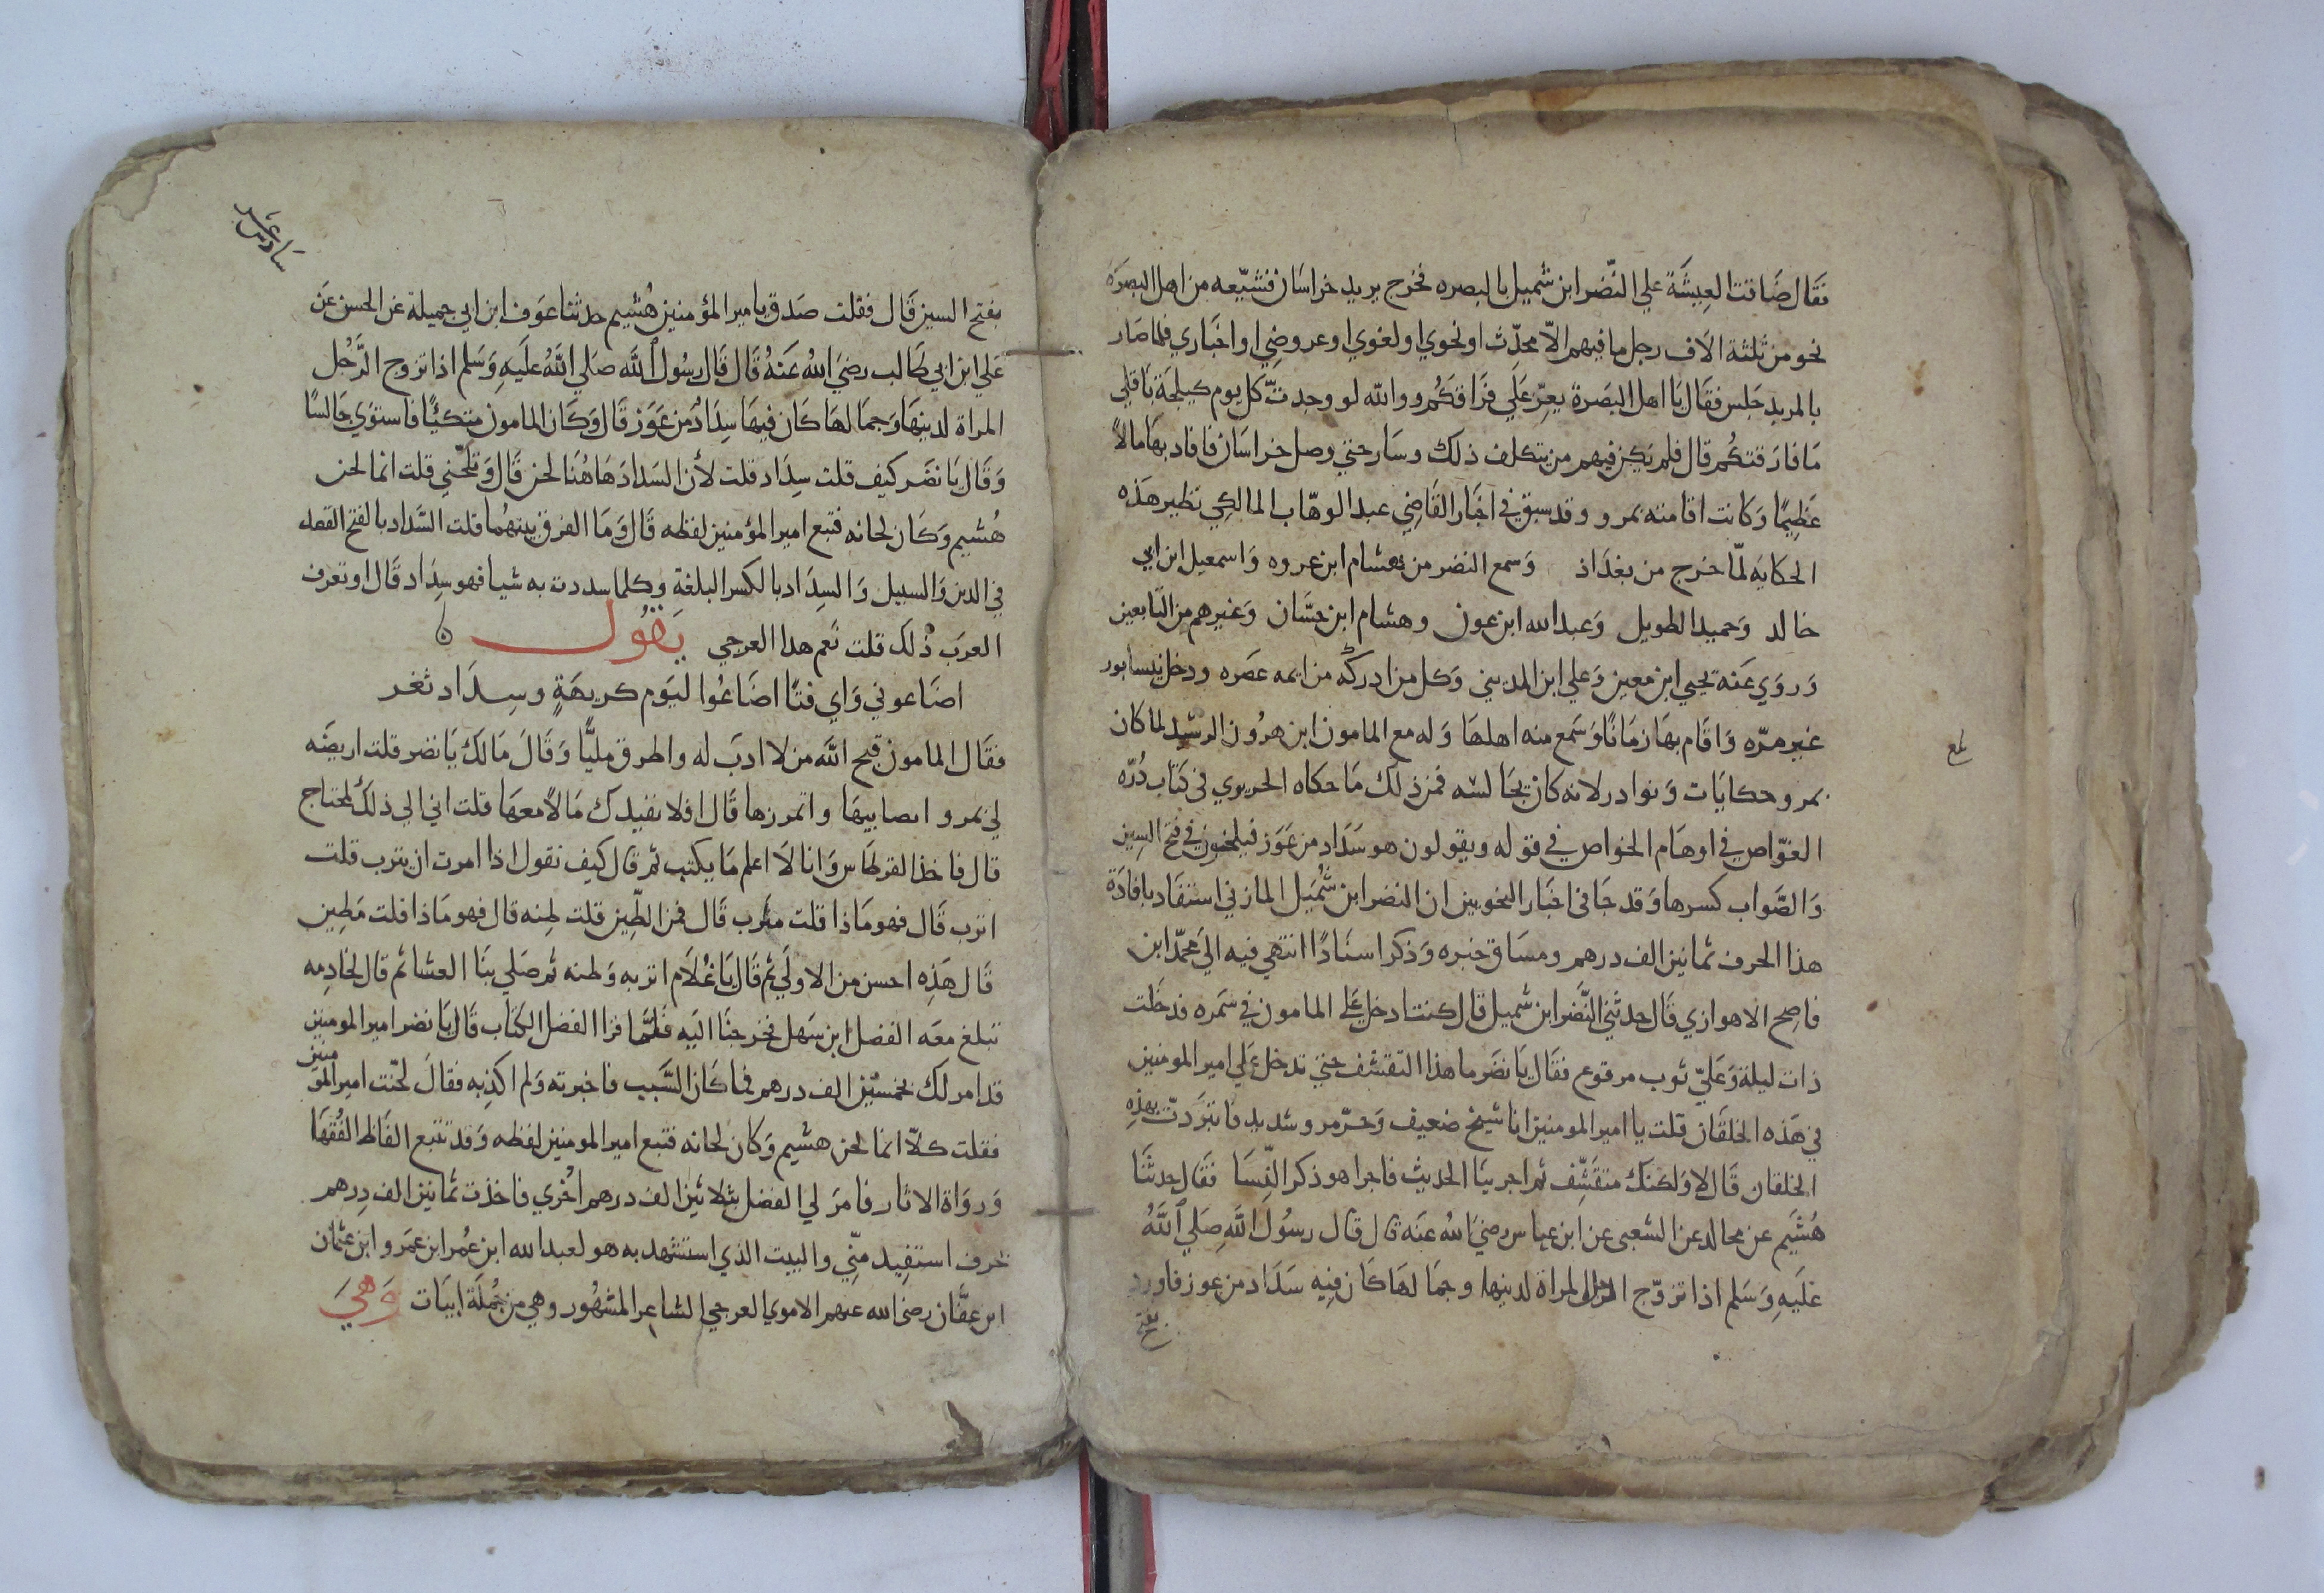 فقال ضاقت المعيشة علي النّضر ابن شميل بالبصره فخرج يريد خراسان فشيّعه من اهل البصرة
نحو من ثلثة الاف رجل ما فيهم الّا محدّث او نحوي او لغوي او عروضي او اخباري فلما صار
بالمربد جلس فقال يا اهل البصرة يعزّ علي فراقكم ووالله لو وجدت كل يوم كيلجة باقلي
ما فارقتكم قال فلم يكن فيهم من يتكلف ذلك وسار حتي وصل خراسان فافاد بها مالًا
عظيمًا وكانت اقامته بمرو وقد سبق في اخبار القاضي عبد الوهّاب المالكي نظير هذه
الحكايه لمّا خرج من بغداذ وسمع النضر من هشام ابن عروه واسمعيل ابن ابي
خالد وحميد الطويل وعبدالله ابن عون وهشام ابن حسّان وغيرهم من التابعين
وروي عنه يحيي ابن معين وعلي ابن المديني وكل من ادركه من ايمه عصره ودخل نيسابور
غير مرّه واقام بها زمانًا وسمع منه اهلها وله مع المامون ابن هرون الرشيد لما كان
بمرو حكايات ونوادر لانه كان يجالسه فمن ذلك ما حكاه الحريري في كتاب دُرّه
الغوّاص في اوهام الخواص في قوله ويقولون هو سَدَاد من عَوَز فيلحنون في فتح السين
والصّواب كسرها وقد جا في اخبار النحويين ان النضر ابن شُميل المازني استفاد بافادة
هذا الحرف ثمانين الف درهم ومساق خبره وذكر اسنادًا انتهي فيه الي محمّد ابن
ناصح الاهوازي قال حدثني النَّضر ابن شميل قال كنت ادخل علي المامون في سمره فدخلت
ذات ليلة وعليّ ثوب مرقوع فقال يا نضر ما هذا التقشف حتي تدخل علي امير المومنين
في هذه الخلقان قلت يا امير المومنين انا شيخ ضعيف وحرّ مرو شديد فاتبرّدت بهذه
الخلقان قال لا ولكنك متقشّف ثم اجرينا الحديث فاجرا هو ذكر النّسا فقال حدثنا
هُشَيم عن مجالد عن الشعبي عن ابن عباس رضي الله عنه قال قال رسُول الله صَلي اللهُ
عليهِ وَسَلم اذا تزوّج الرجل المراة لدينها وجمالها كان فيه سَدَاد من عوز فاورد
بفتح
بلغ
سادس عشر
بفتح السين قال فقلت صدق يا امير المؤمنين هُشيم حدثنا عوف ابن ابي جميلة عن الحسن عن
علي ابن ابي طالب رضيَ اللهُ عَنهُ قَال قَال رسُول الله صَلي اللهُ عليهِ وَسَلم اذا تزوج الرَّجُل
المراة لدينها وجمالها كان فيها سِدادٌ من عَوَز قال وكان المامون متكئًا فاستوي جَالسًا
وقال يا نضر كيف قلت سِداد قلت لأن السَداد هاهُنا لحن قال وتلحّنني قلت انما لحن
هُشيم وكان لحانه فتبع امير المؤمنين لفظه قال وما الفرق بينهُما قلت السَّداد بالفتح القصد
في الدين والسبيل والسِدَاد بالكسر البلغةِ وكلما سددت به شيا فهو سِدَاد قال او تعرف
العرب ذٰلك قلت نعم هدا العرجي يقول
اضاعوني واي فتًا اضاعُوا ليَوم كريهَةٍ وسِدَاد ثغر
فقال المامون قبح اللهَ من لا ادبَ له واطرق مليًّا وقال مَالك يا نضر قلت اريضَه
لي بمرو اتصابيها واتمرزها قال افلا نفيدك مالًا معها قلت اني الي ذلك لمحتاج
قال فاخذ القرطاس وانا لا اعلم ما يكتب ثم قال كيف تقول اذا امرت ان يترب قلت
اترب قال فهو ماذا قلت مترب قال فمن الطّين قلت طِنه قال فهو ماذا قلت مَطِين
قال هَذِه احسن من الاولَي ثم قَال يا غُلام اتربه وطنه ثم صَلي بنا العشا ثم قال لخادِمه
تبلغ معَه الفضل ابن سَهل فخرجنا اليَه فلمّا قرا الفضل الكتاب قال يا نضر امير المومنين
قد امر لك بخمسين الف درهم فما كان السَّبَب فاخبرته ولم اكذبه فقال لحّنت امير المومنين
فقلت كلّا انما لحن هشيم وكان لحانه فتبع امير المومنين لفظه وقد تتبع الفاظ الفُقَها
وروَاة الاثار فامرَ لي الفضل بثلاثين الف درهم اخْري فاخذت ثمانين الف دِرهم
بحرف استفيد منّي والبيت الذي استشهد به هو لعبدالله ابن عُمر ابن عمَرو ابن عثمان
ابن عفَّان رضي الله عنهم الاموي العرجي الشاعر المشهُور وهي من جُملَة ابيَات وَهيَ